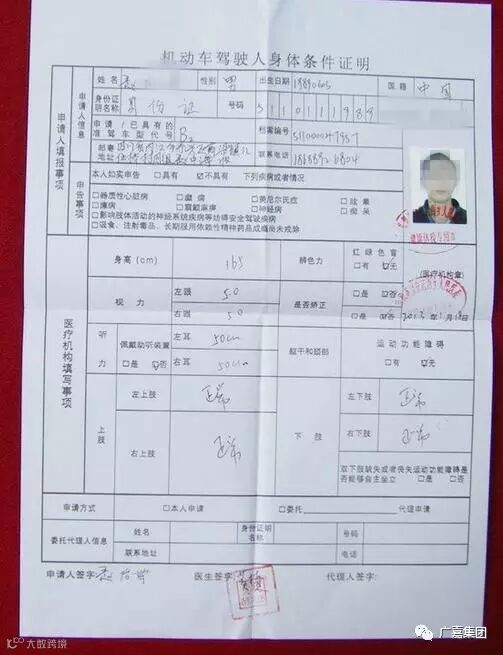 机动车驾驶人身体条件证明
申请人填报事项
申请人信息
姓名 性别 男 出生日期 19890605 国籍 中国
身份证明名称 身份证 号码 5110111989
申请/已具有的准驾车型代号 B2 档案编号
邮寄地址 联系电话
申告事项
本人如实申告 □具有 ☑不具有 下列疾病或者情况
□器质性心脏病 □癫痫 □美尼尔氏症 □眩晕
□癔病 □震颤麻痹 □神经病 □痴呆
□影响肢体活动的神经系统疾病等妨碍安全驾驶疾病
□吸食、注射毒品、长期服用依赖性精神药品成瘾尚未戒除
医疗机构填写事项
身高(cm) 165 辨色力 红绿色盲
□有 ☑无
(医疗机构章)
视力 左眼 5.0 是否矫正 □是 ☑否
右眼 5.0 □是 ☑否
2013年1月18日
听力 佩戴助听装置 左耳 50cm 躯干和颈部 运动功能障碍
□是 ☑否 右耳 50cm □有 ☑无
上肢 左上肢 正常 下肢 左下肢 正常
右上肢 正常 右下肢 正常
双下肢缺失或者丧失运动功能障碍是否能够自主坐立 □是 □否
申请方式 □本人申请 □委托 代理申请
委托代理人信息 姓名 身份证明名称 号码
联系地址 电话
申请人签字: 医生签字: 代理人签字:
大数跨境
广嘉集团